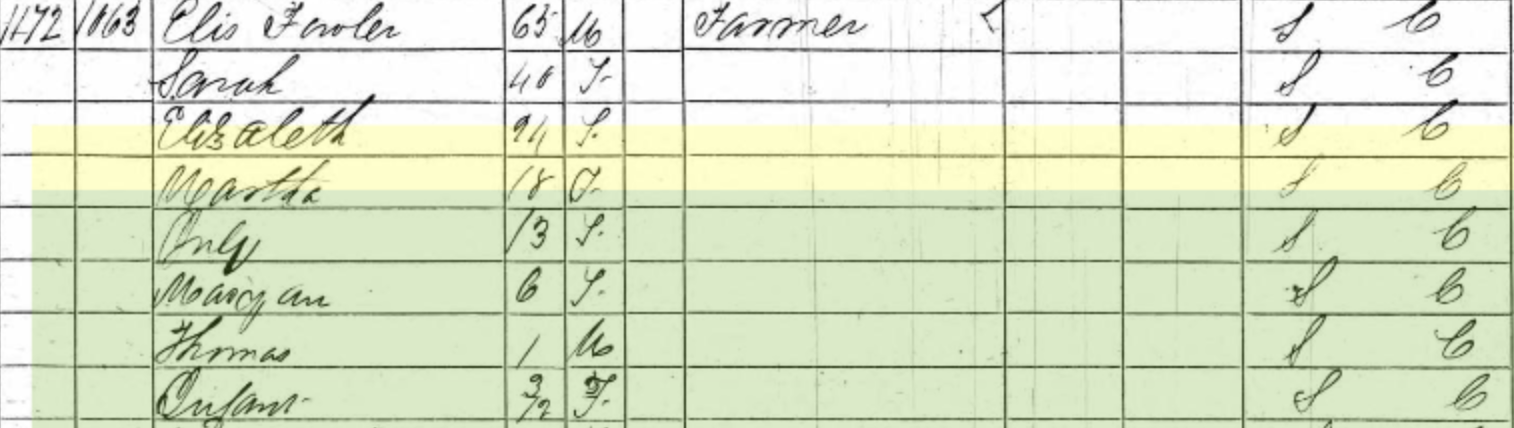 1172 1063 Elis Fowler 65 M Farmer S C
Sarah 40 F S C
Elizabeth 24 F S C
Martha 18 F S C
13 F S C
Maryan 6 F S C
Thomas 1 M S C
Infant 3/12 F S C